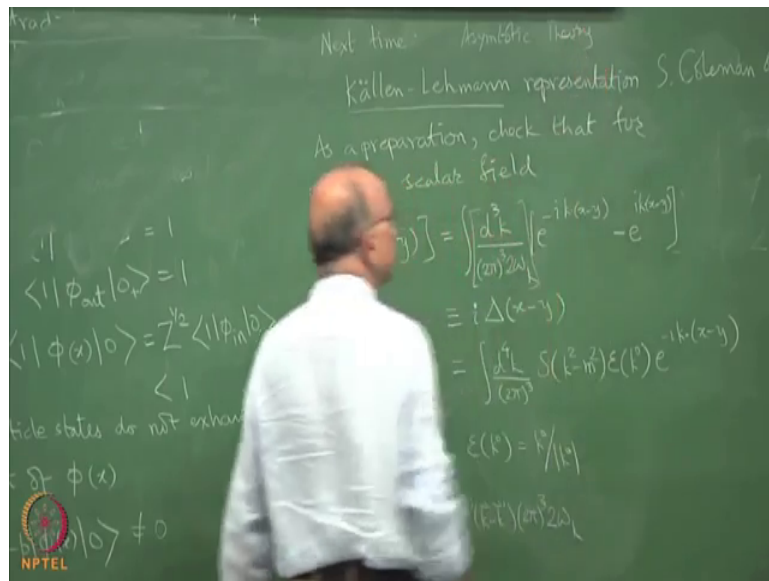 Next time: Asymbtotic Theory
Källen-Lehmann representation S. Coleman
As a preparation, check that for
scalar field
y)] = ∫ [d³k/(2π)³2ω_k] [e^{-ik(x-y)} - e^{ik(x-y)}]
≡ iΔ(x-y)
= ∫ d⁴k/(2π)³ δ(k²-m²) ε(k⁰) e^{-ik·(x-y)}
ε(k⁰) = k⁰/|k⁰|
(2π)³2ω_k
= 1
⟨1|ϕ_out|0₊⟩ = 1
⟨1|ϕ(x)|0⟩ = Z^{1/2} ⟨1|ϕ_in|0⟩
< 1
ticle states do not exhau
of ϕ(x)
|0⟩ ≠ 0
NPTEL